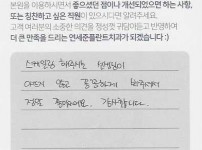 본원을 이용하시면서 좋으셨던 점이나 개선되었으면 하는 사항,
또는 칭찬하고 싶은 직원이 있으시다면 알려주세요.
고객 여러분의 소중한 의견을 정성껏 귀담아듣고 반영하여
더 큰 만족을 드리는 연세준플란트치과가 되겠습니다 :)
스케일링 해주시는 선생님이
아프지 않고 꼼꼼하게 봐주셔서
정말 좋아요. 감사합니다.